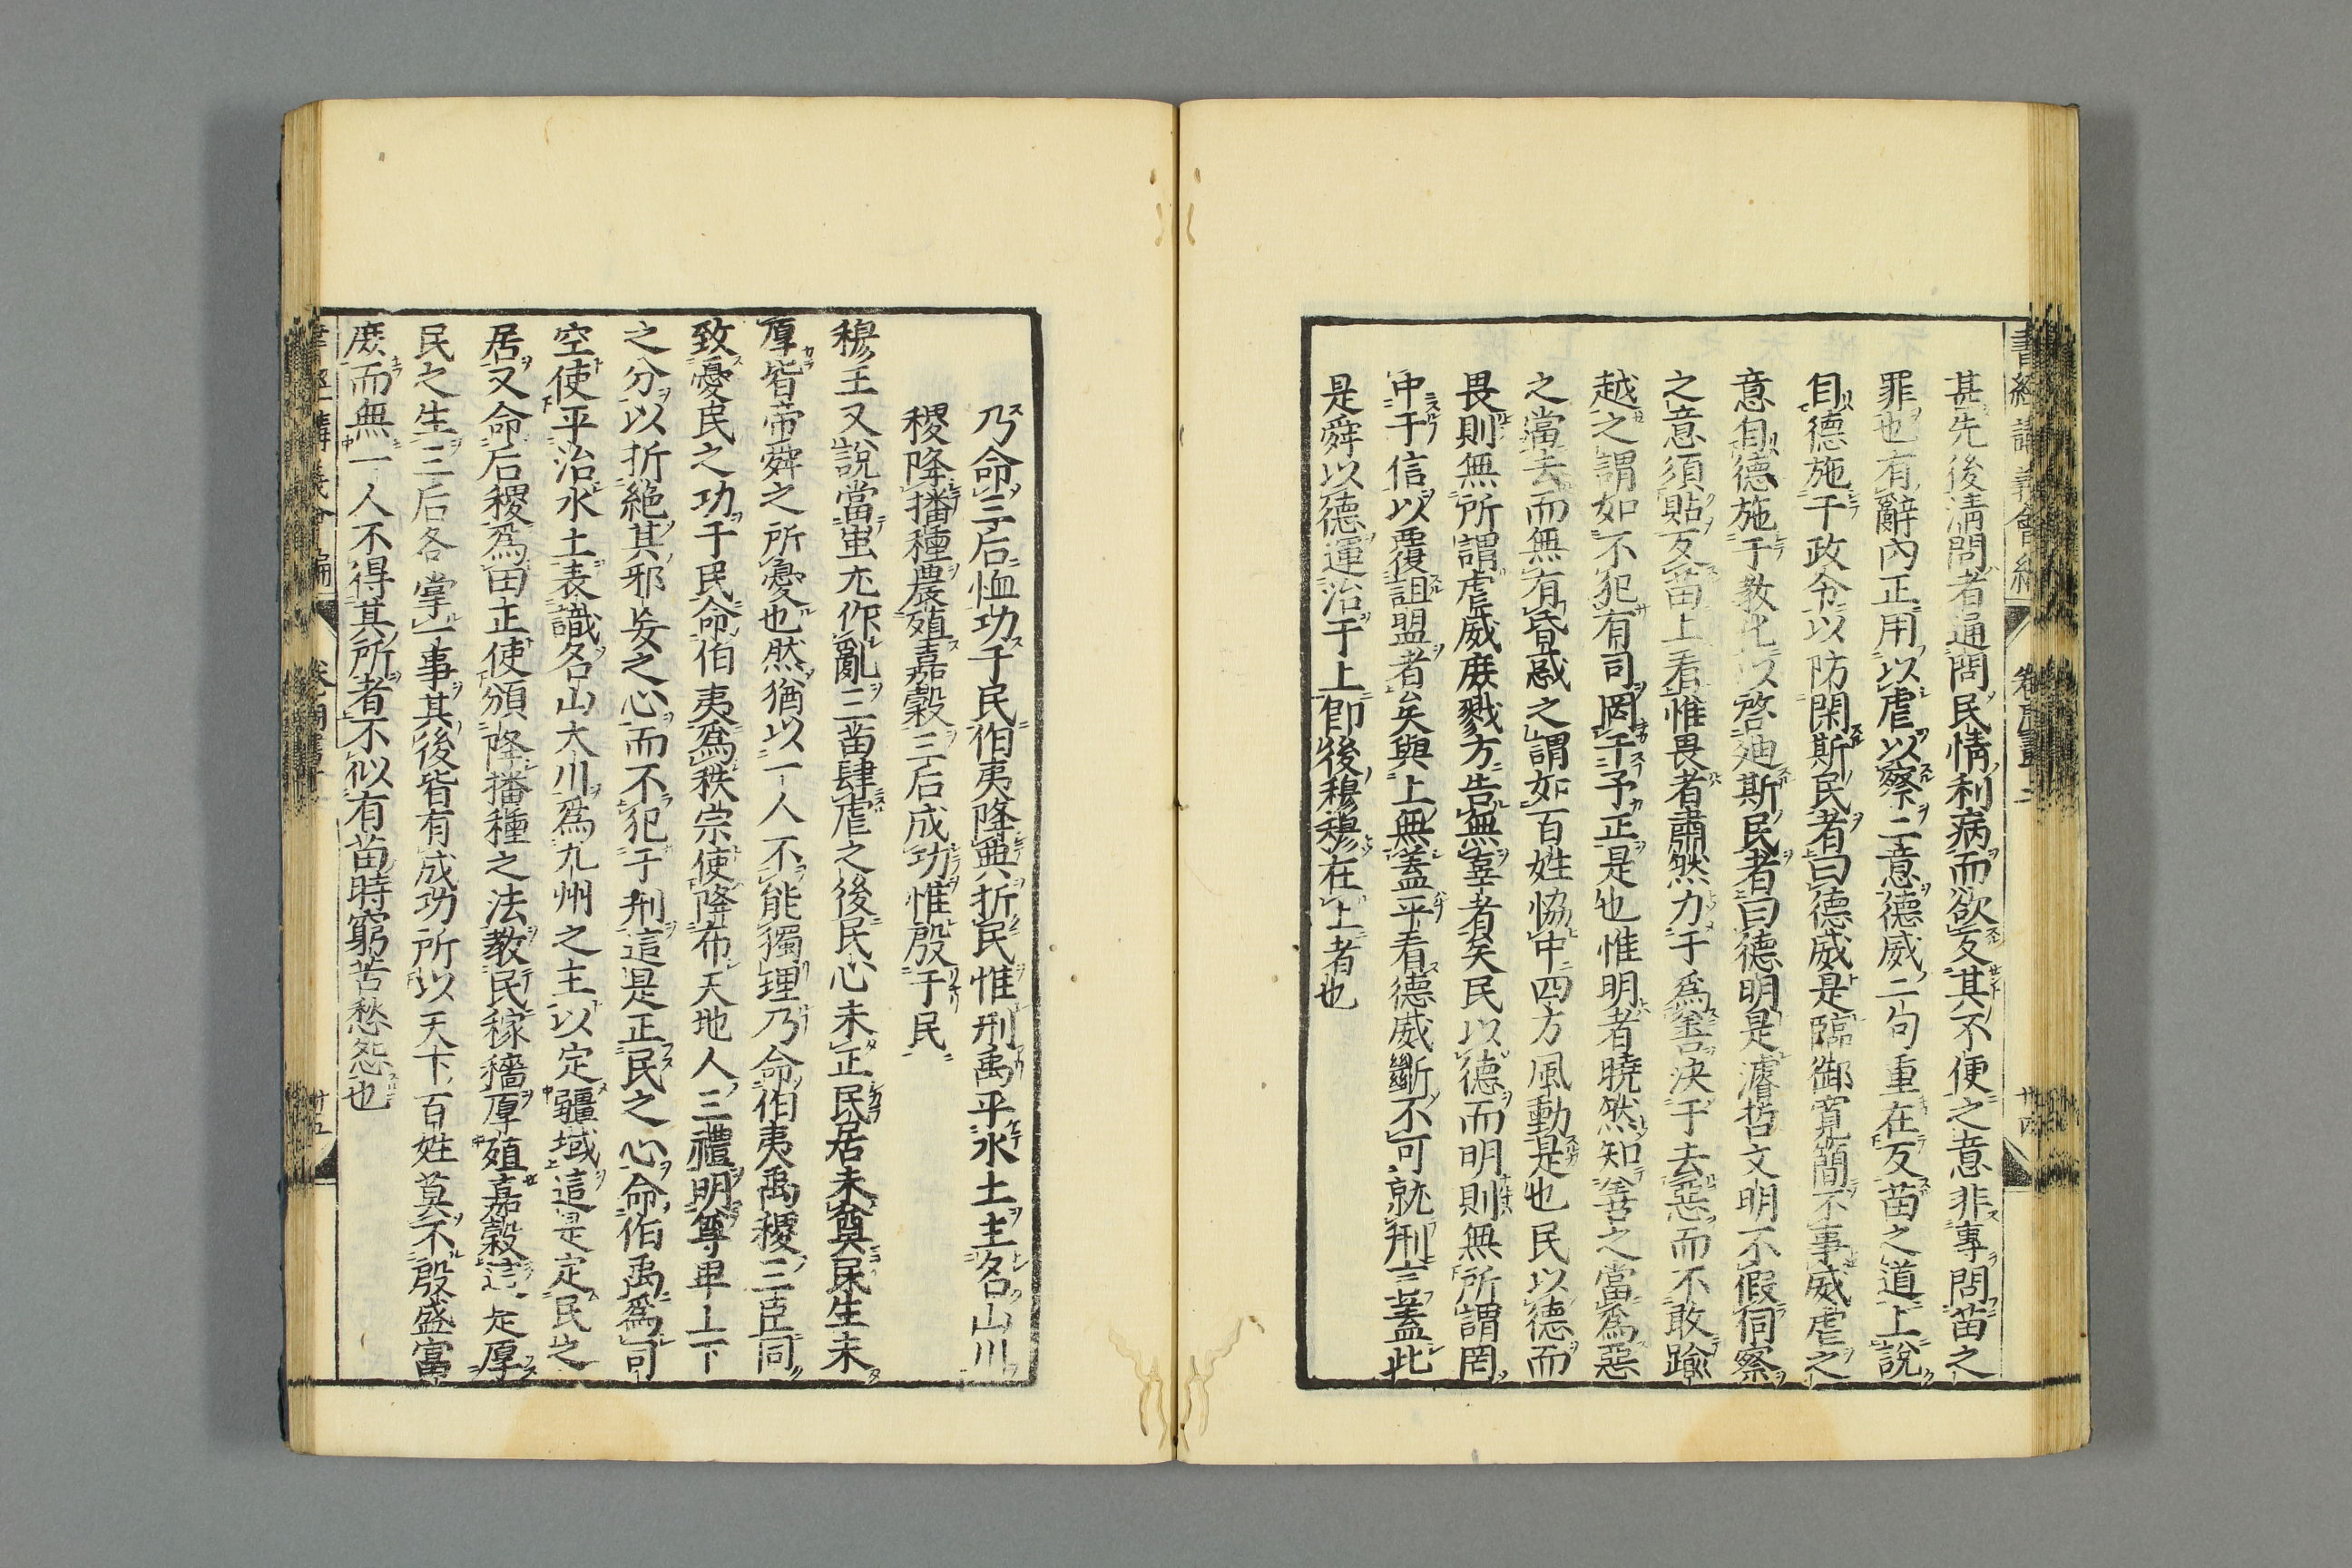 甚先後清問者通問民情利病而欲反其不便之意非專問苗之
罪也有辭內正用以虐以察二意德威二句重在反苗之道上說
自德施于政令以防閑斯民者曰德威是臨御寬簡不事威虐之
意自德施于教化以啓迪斯民者曰德明是濬哲文明不假伺察
之意須貼反苗上看惟畏者肅然力于爲善决于去惡而不敢踰
越之謂如不犯有司罔干予正是也惟明者曉然知善之當爲惡
之當去而無有昏惑之謂如百姓協中四方風動是也民以德而
畏則無所謂虐威庶戮方告無辜者矣民以德而明則無所謂罔
中于信以覆詛盟者矣與上無蓋平看德威斷不可就刑言蓋此
是舜以德運治于上卽後穆穆在上者也
乃命三后恤功于民伯夷降典折民惟刑禹平水土主名山川
稷降播種農殖嘉穀三后成功惟殷于民
穆王又說當蚩尤作亂三苗肆虐之後民心未正民居未奠民生未
厚皆帝舜之所憂也然猶以一人不能獨理乃命伯夷禹稷三臣同
致憂民之功于民命伯夷爲秩宗使降布天地人三禮明尊卑上下
之分以折絕其邪妄之心而不犯于刑這是正民之心命伯禹爲司
空使平治水土表識名山大川爲九州之主以定疆域這是定民之
居又命后稷爲田正使頒降播種之法教民稼穡厚殖嘉穀這是厚
民之生三后各掌一事其後皆有成功所以天下百姓莫不殷盛富
庶而無一人不得其所者不似有苗時窮苦愁怨也